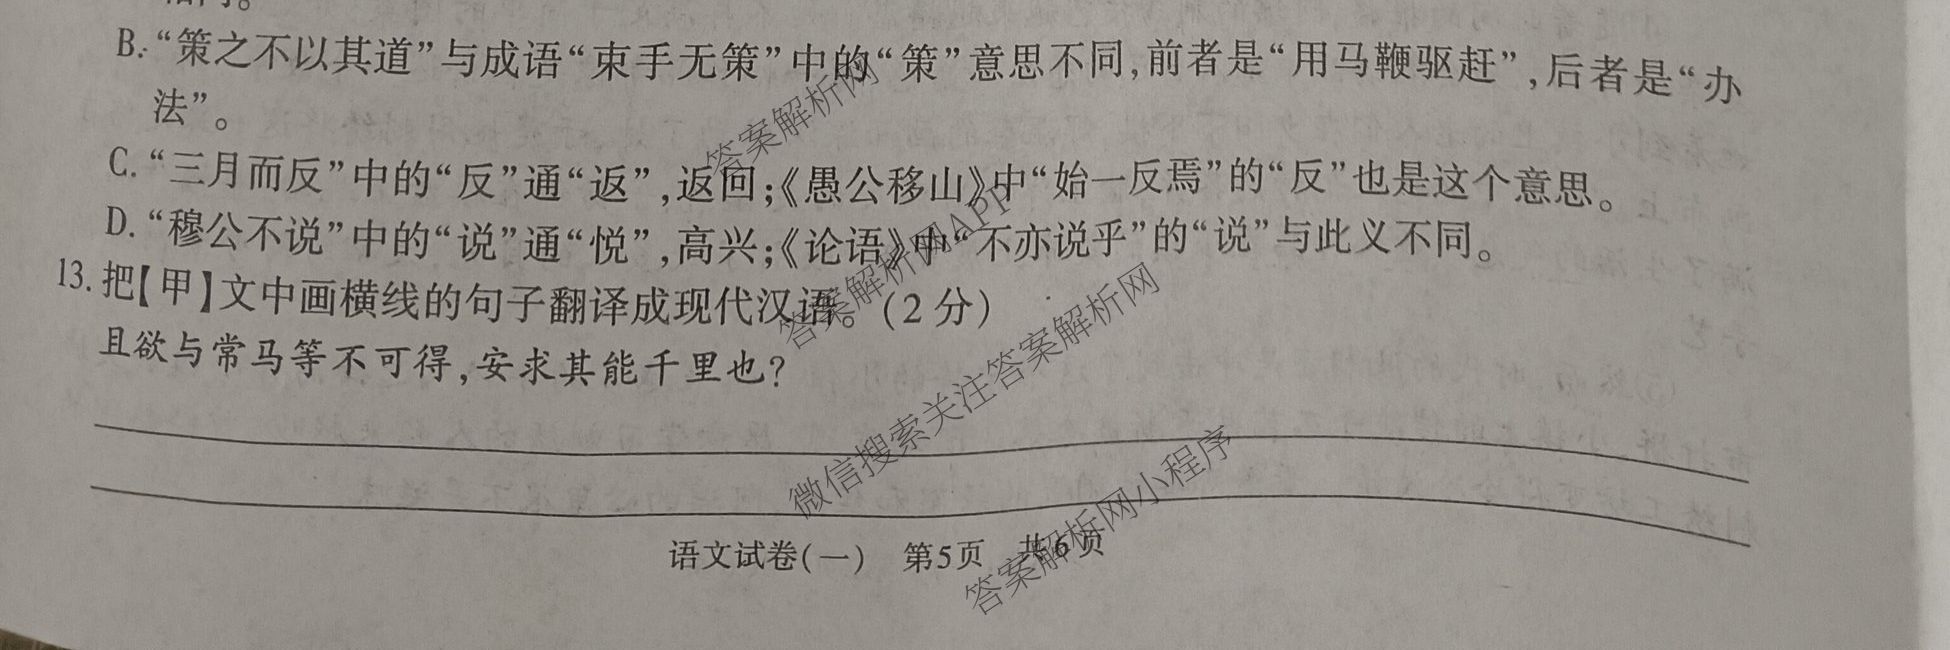 B.“策之不以其道”与成语“束手无策”中的“策”意思不同,前者是“用马鞭驱赶”,后者是“办
法”。
C.“三月而反”中的“反”通“返”,返回;《愚公移山》中“始一反焉”的“反”也是这个意思。
D.“穆公不说”中的“说”通“悦”,高兴;《论语》中“不亦说乎”的“说”与此义不同。
13.把【甲】文中画横线的句子翻译成现代汉语。(2分)
且欲与常马等不可得,安求其能千里也?
语文试卷(一) 第5页 共6页
答案解析网
答案解析网APP
微信搜索关注答案解析网
答案解析网小程序